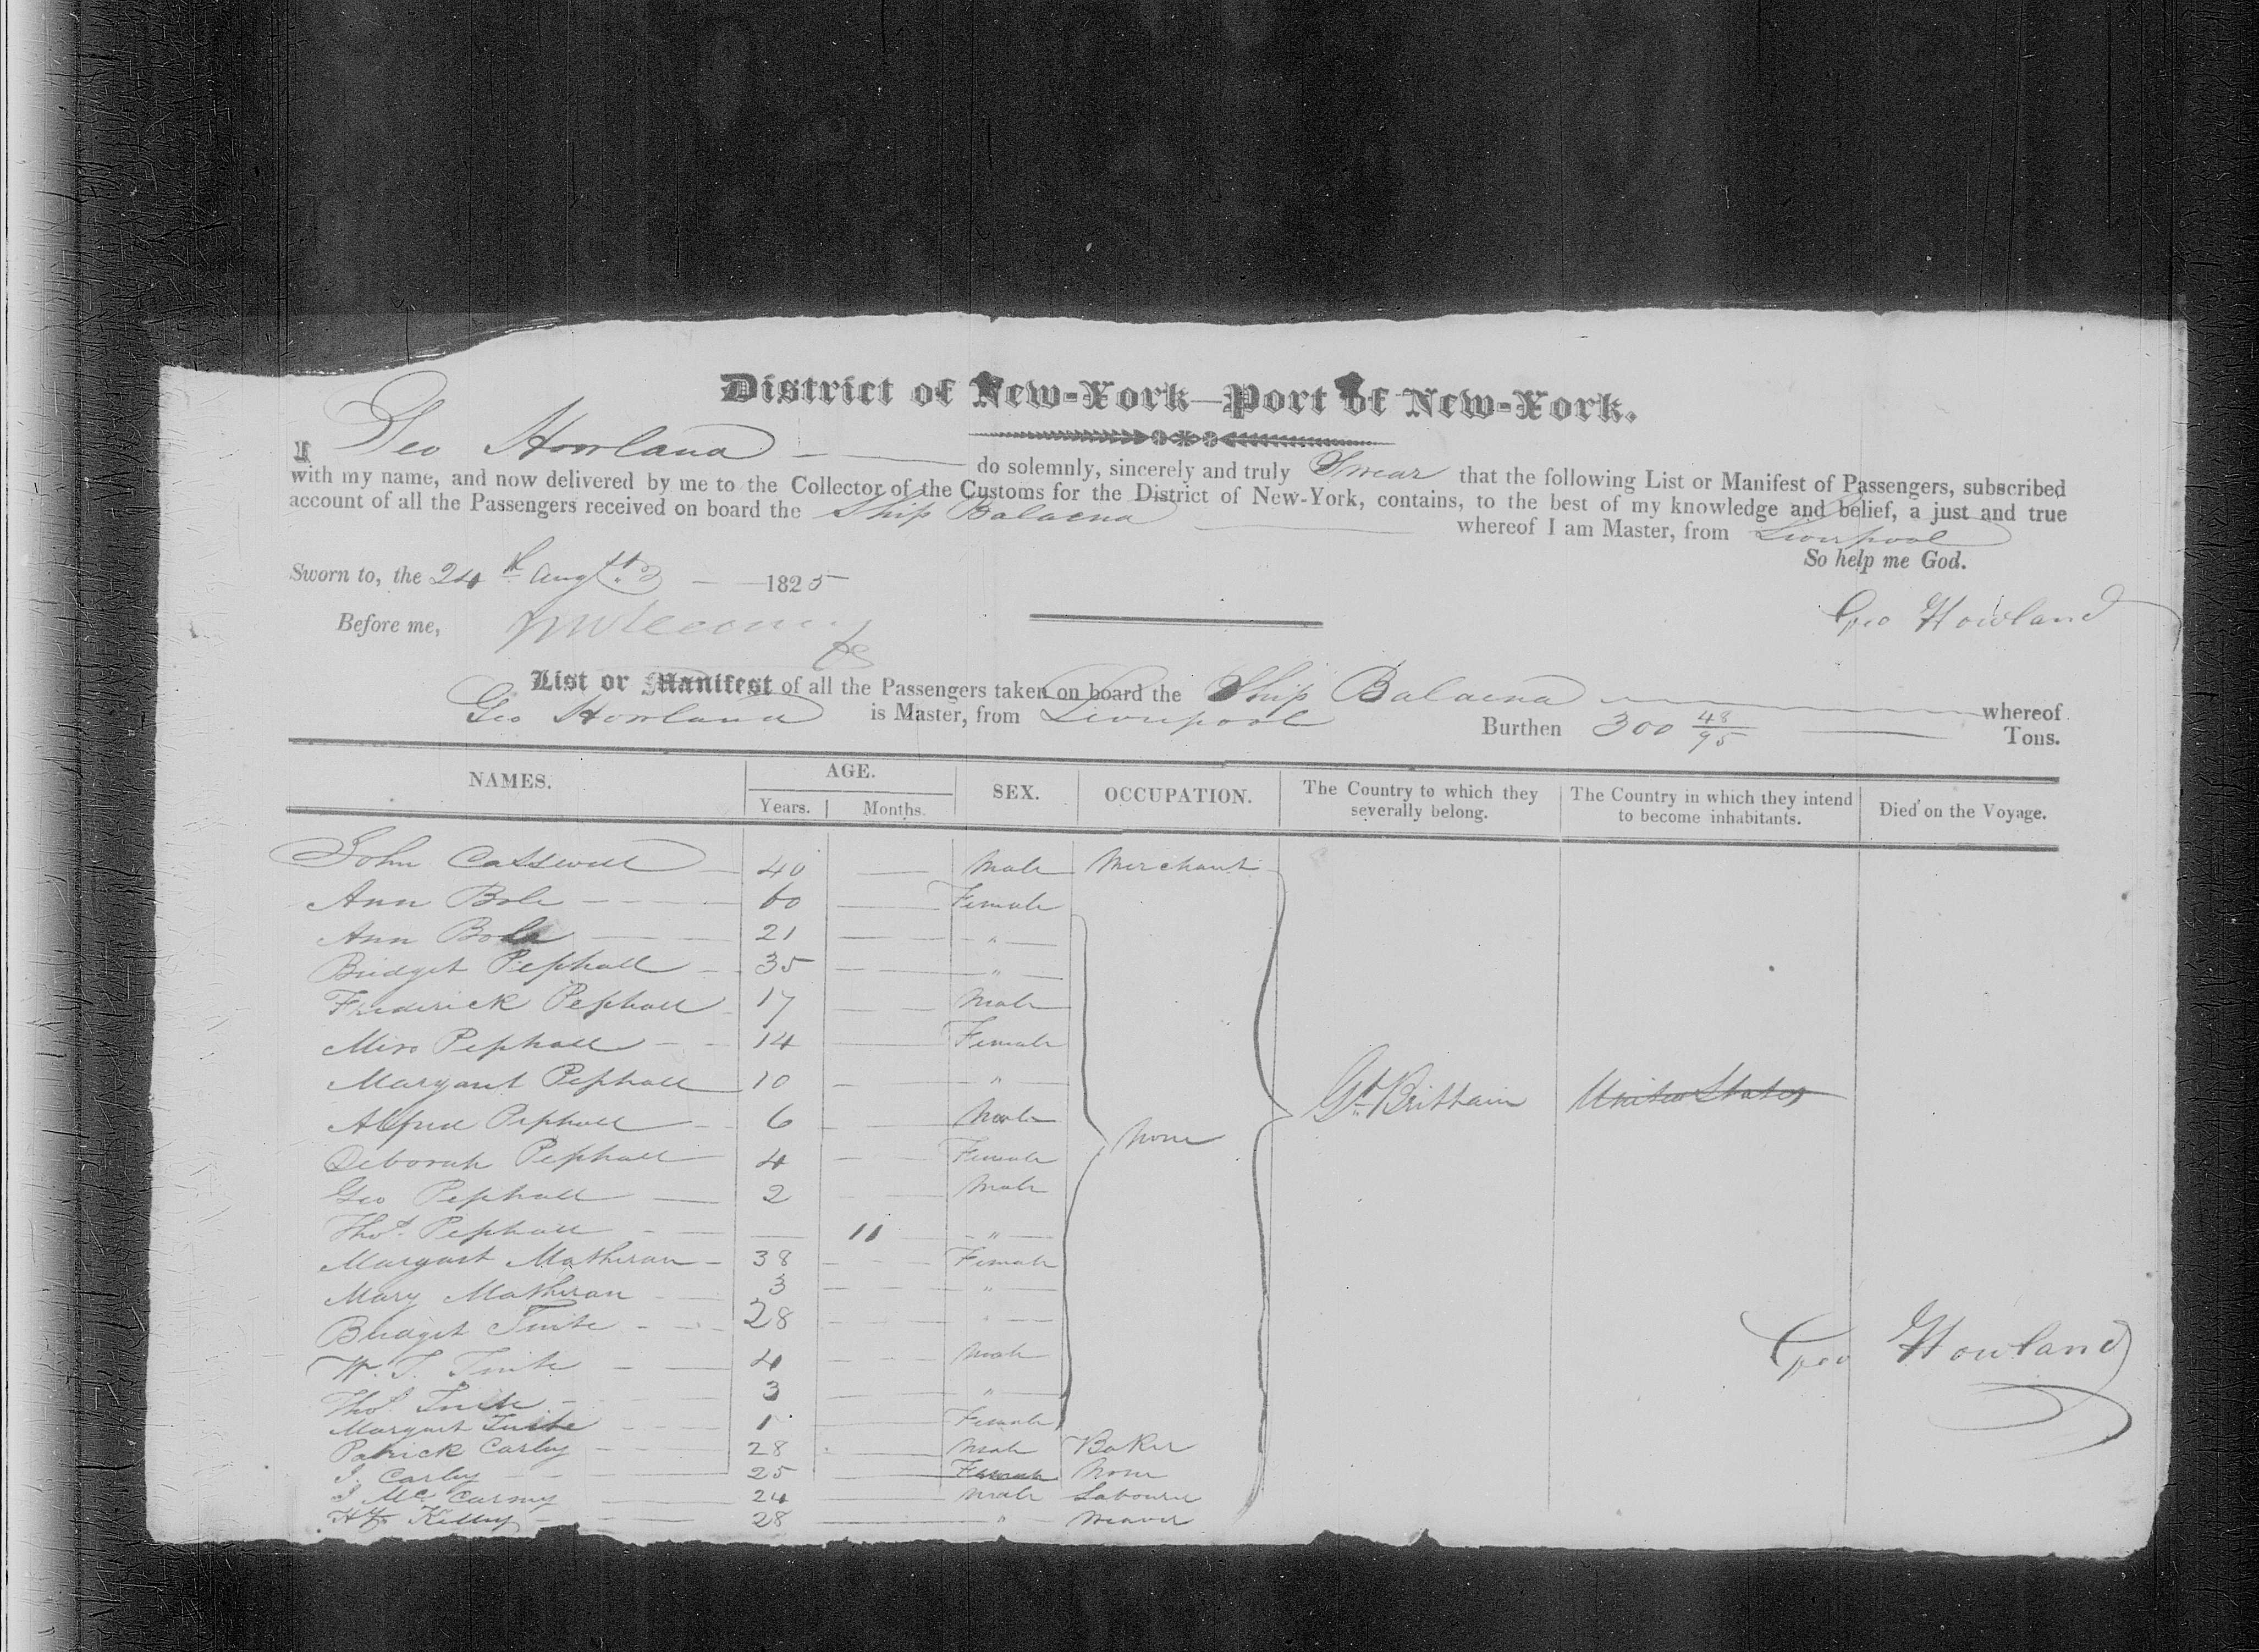 District of New-York—Port of New-York.
I Geo Howland do solemnly, sincerely and truly Swear that the following List or Manifest of Passengers, subscribed
with my name, and now delivered by me to the Collector of the Customs for the District of New-York, contains, to the best of my knowledge and belief, a just and true
account of all the Passengers received on board the Ship Balaena whereof I am Master, from Liverpool
So help me God.
Sworn to, the 24th Augt 1825
Geo Howland
Before me,
List or Manifest of all the Passengers taken on board the Ship Balaena whereof
Geo Howland is Master, from Liverpool Burthen 300 48/95 Tons.
NAMES. AGE. Years. Months. SEX. OCCUPATION. The Country to which they severally belong. The Country in which they intend to become inhabitants. Died on the Voyage.
John Casswell 40 Male Merchant
Ann Bole 60 Female
Ann Bole 21 "
Bridget Pephall 35 "
Frederick Pephall 17 Male
Miss Pephall 14 Female
Margaret Pephall 10 "
Alfred Pephall 6 Male
Gt Brittain United States
None
Deborah Pephall 4 Female
Geo Pephall 2 Male
Thos Pephall 11 "
Margaret Matheran 38 Female
Mary Matheran 3 "
Bridget Tuite 28 "
W. T. Tuite 4 Male
Geo Howland
Thos Tuite 3 "
Margaret Tuite 1 Female
Patrick Carley 28 Male Baker
J. Carley 25 Female None
J Mc Carmy 24 Male Labourer
Kelley 28 " Weaver